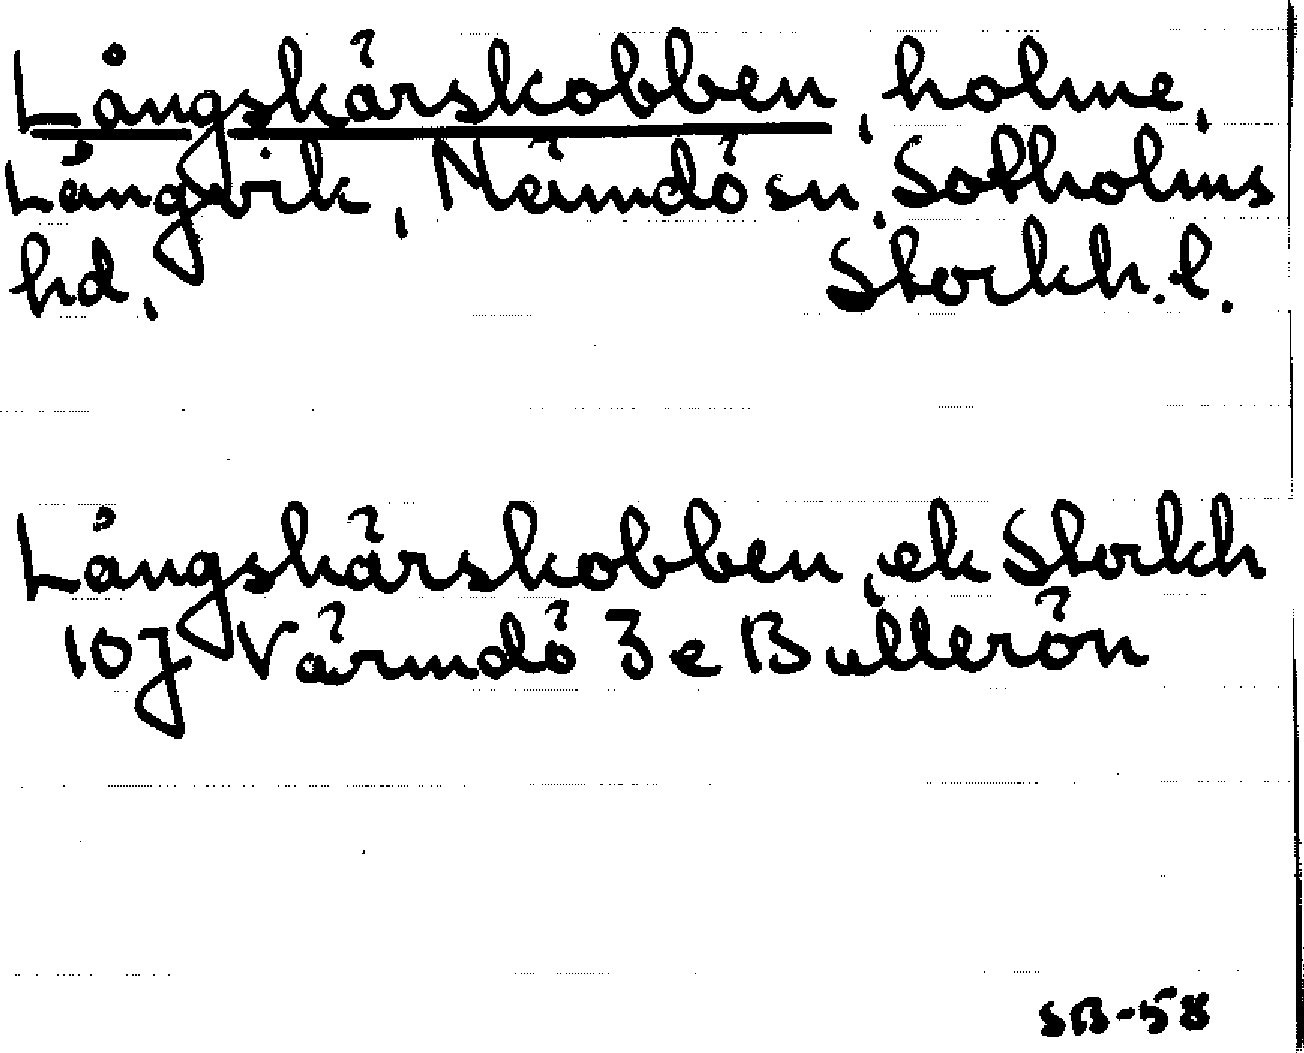 Långskärskobben, holme,
Långvik, Nämdö sn, Sotholms
hd, Stockh. l.
Långskärskobben, ek Stockh
10j Värmdö 3 e Bullerön
SB-58